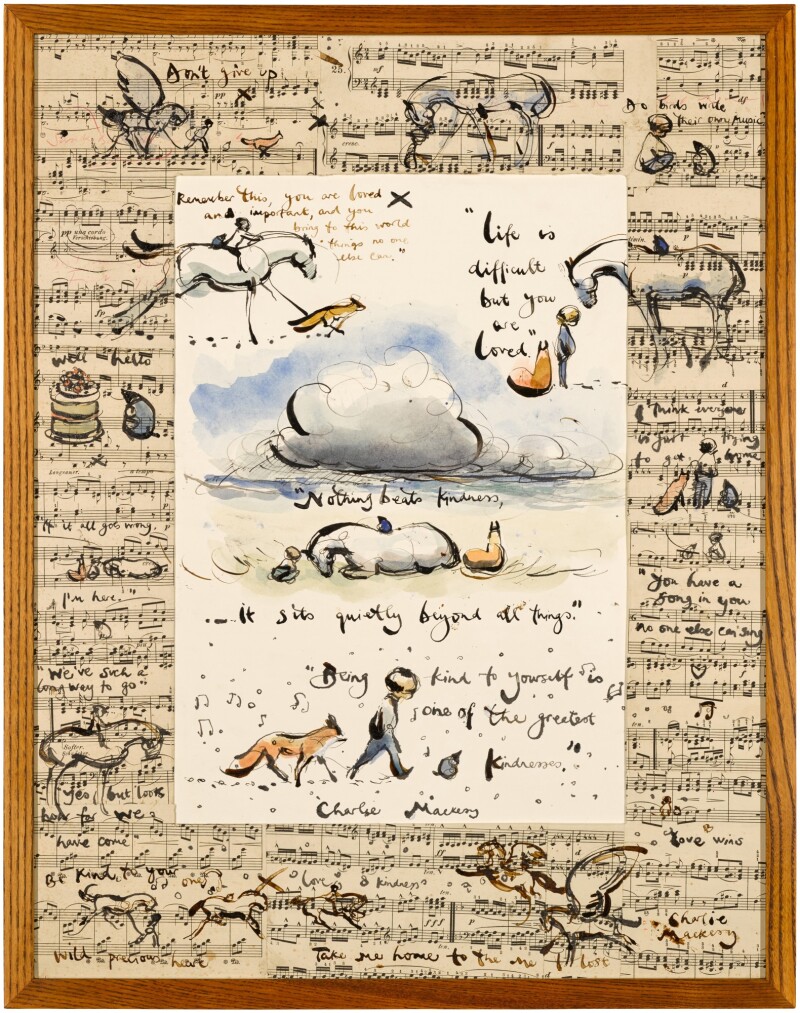 Don't give up
25.
Do birds write
their own music
Remember this, you are loved
and important, and you
bring to this world
things no one
else can."
"Life is
difficult
but you
are
loved."
well hello
I think everyone
is just trying
to get home
"Nothing beats kindness,
it all goes wrong
I'm here."
"You have a
song in you
no one else can sing
It sits quietly beyond all things."
"We've such a
long way to go"
"Being kind to yourself is
one of the greatest
Kindnesses."
Yes, but look
how far we
have come
Charlie Mackesy
Love wins
Be kind to your own
Wild precious heart
Love kindness
Take me home to the me I lost
Charlie
Mackesy